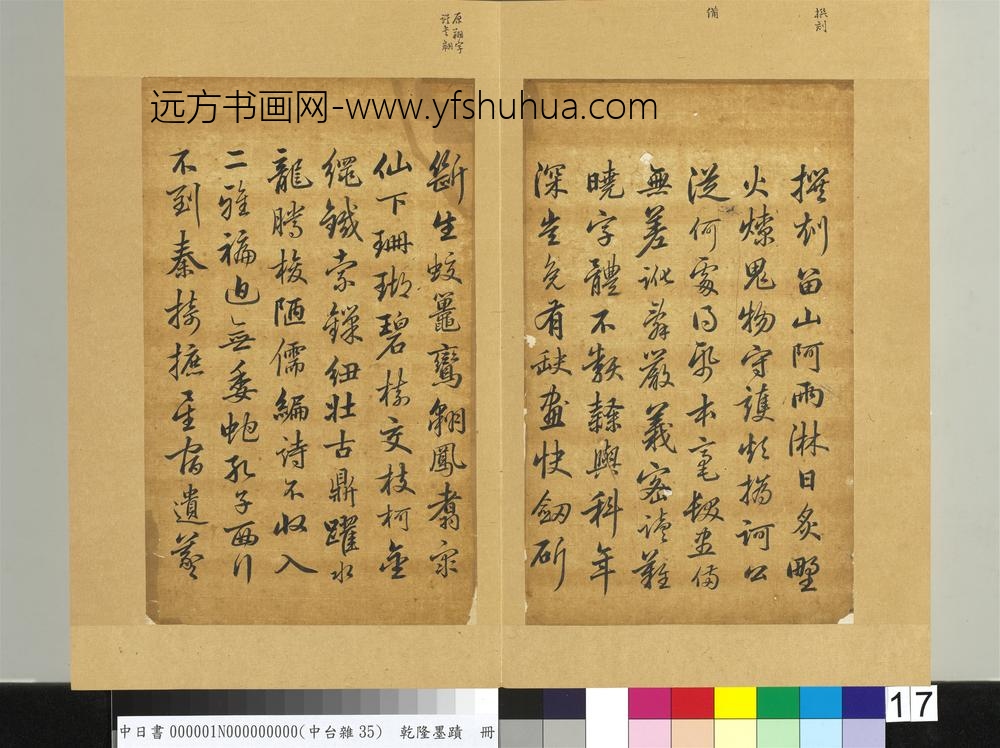 撰刻
備
撰刻留山阿雨淋日炙野
火燎鬼物守護煩撝訶公
從何處得紙本毫髮盡備
無差訛辭嚴義密讀難
曉字體不類隸與科年
深豈免有缺畫快劒斫
斷生蛟鼉鸞翱鳳翥眾
仙下珊瑚碧樹交枝柯金
繩鐵索鎖紐壯古鼎躍水
龍騰梭陋儒編詩不收入
二雅褊迫無委蛇孔子西行
不到秦掎摭星宿遺羲
远方书画网-www.yfshuhua.com
中日書000001N000000000(中台雜35) 乾隆墨蹟 冊
17